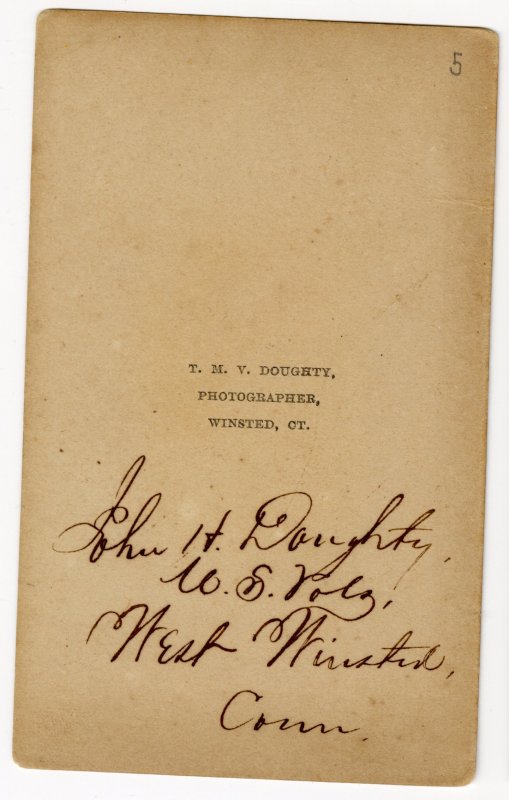 5
T. M. V. DOUGHTY,
PHOTOGRAPHER,
WINSTED, CT.
John H. Doughty,
U. S. Vols,
West Winsted,
Conn.